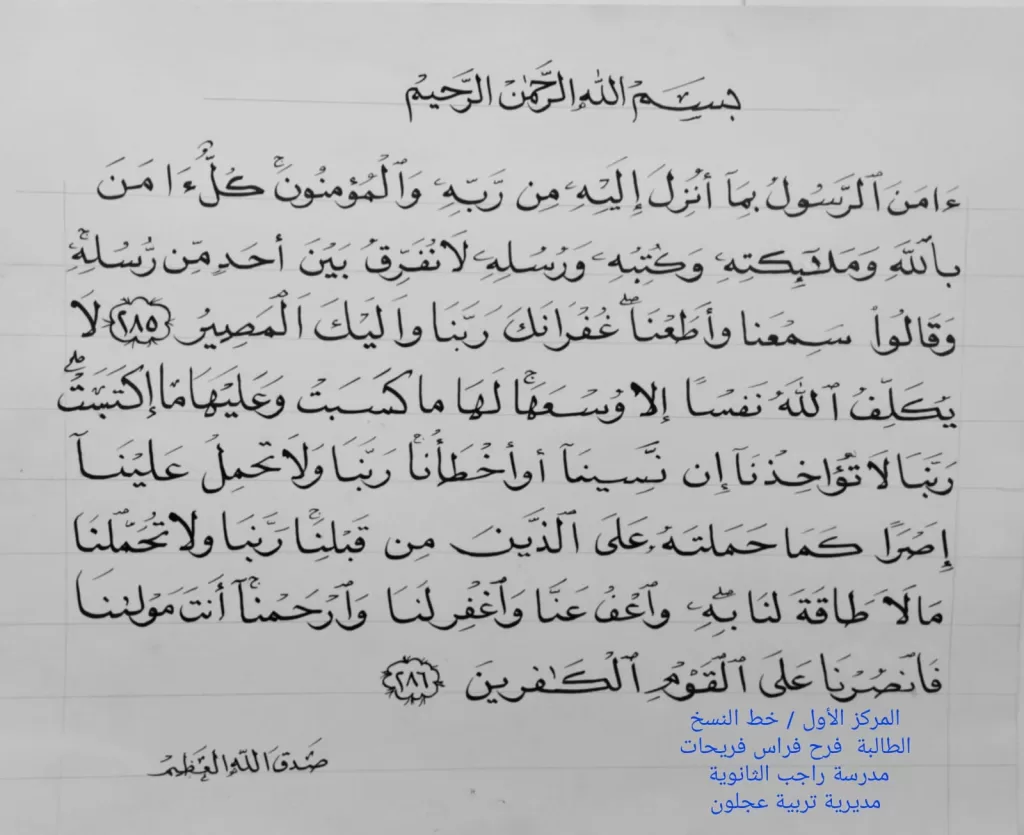 بِسْمِ اللهِ الرَّحْمٰنِ الرَّحِيْمِ
ءَامَنَ ٱلرَّسُولُ بِمَآ أُنْزِلَ إِلَيْهِ مِن رَّبِّهِۦ وَٱلْمُؤْمِنُونَ ۚ كُلٌّ ءَامَنَ
بِٱللَّهِ وَمَلَـٰٓئِكَتِهِۦ وَكُتُبِهِۦ وَرُسُلِهِۦ لَا نُفَرِّقُ بَيْنَ أَحَدٍ مِّن رُّسُلِهِۦ ۚ
وَقَالُوا۟ سَمِعْنَا وَأَطَعْنَا ۖ غُفْرَانَكَ رَبَّنَا وَإِلَيْكَ ٱلْمَصِيرُ ٢٨٥ لَا
يُكَلِّفُ ٱللَّهُ نَفْسًا إِلَّا وُسْعَهَا ۚ لَهَا مَا كَسَبَتْ وَعَلَيْهَا مَا إكْتَسَبَتْ ۗ
رَبَّنَا لَا تُؤَاخِذْنَآ إِن نَّسِينَآ أَوْ أَخْطَأْنَا ۚ رَبَّنَا وَلَا تَحْمِلْ عَلَيْنَآ
إِصْرًا كَمَا حَمَلْتَهُۥ عَلَى ٱلَّذِينَ مِن قَبْلِنَا ۚ رَبَّنَا وَلَا تُحَمِّلْنَا
مَالَا طَاقَةَ لَنَا بِهِۦ ۖ وَٱعْفُ عَنَّا وَٱغْفِرْ لَنَا وَٱرْحَمْنَآ ۚ أَنتَ مَوْلَىٰنَا
فَٱنصُرْنَا عَلَى ٱلْقَوْمِ ٱلْكَـٰفِرِينَ ٢٨٦
صَدَقَ اللهُ العَظِيْم
المركز الأول / خط النسخ
الطالبة فرح فراس فريحات
مدرسة راجب الثانوية
مديرية تربية عجلون